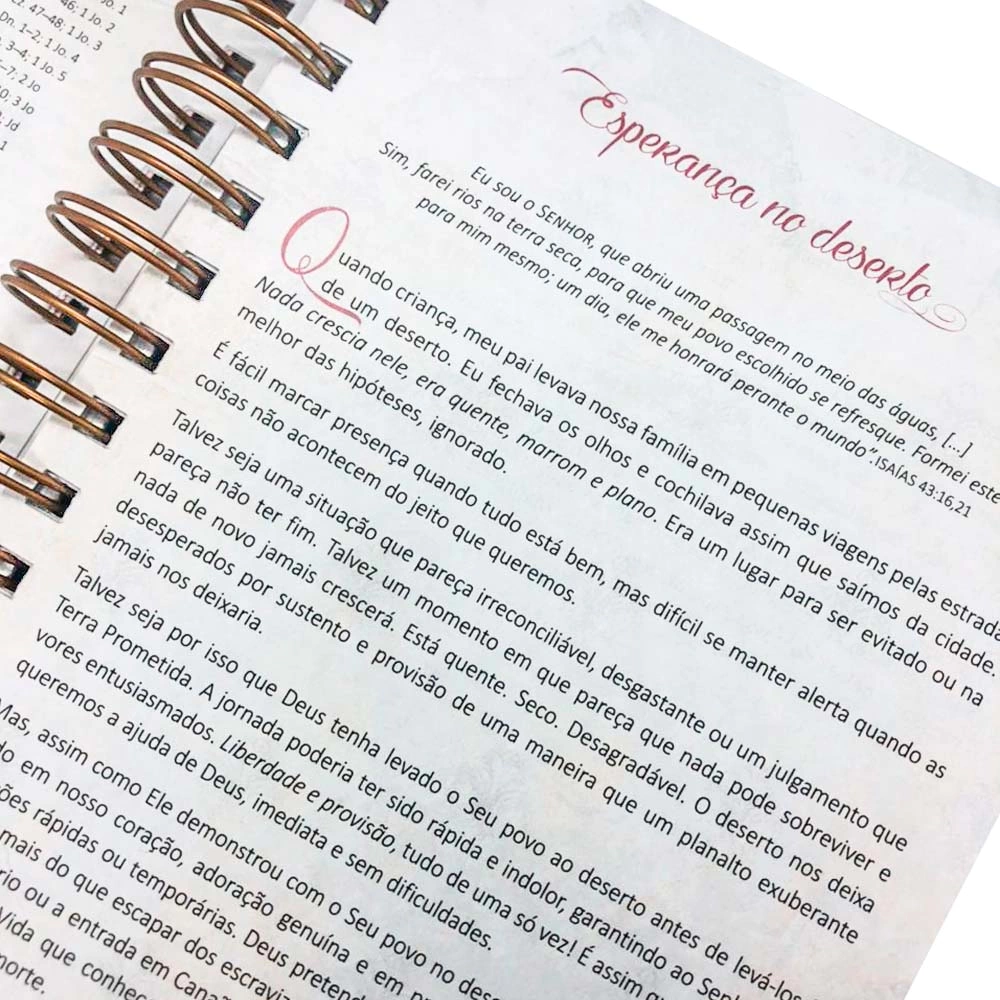 46; 1 Jo. 2
Ez. 47–48; 1 Jo. 3
Dn. 1–2; 1 Jo. 4
3–4; 1 Jo. 5
–7; 2 Jo
10; 3 Jo
Jd
1
Esperança no deserto
Eu sou o SENHOR, que abriu uma passagem no meio das águas, [...]
Sim, farei rios na terra seca, para que meu povo escolhido se refresque. Formei este
para mim mesmo; um dia, ele me honrará perante o mundo”. ISAÍAS 43:16,21
Quando criança, meu pai levava nossa família em pequenas viagens pelas estrada
de um deserto. Eu fechava os olhos e cochilava assim que saímos da cidade.
Nada crescia nele, era quente, marrom e plano. Era um lugar para ser evitado ou na
melhor das hipóteses, ignorado.
É fácil marcar presença quando tudo está bem, mas difícil se manter alerta quando as
coisas não acontecem do jeito que queremos.
Talvez seja uma situação que pareça irreconciliável, desgastante ou um julgamento que
pareça não ter fim. Talvez um momento em que pareça que nada pode sobreviver e
nada de novo jamais crescerá. Está quente. Seco. Desagradável. O deserto nos deixa
desesperados por sustento e provisão de uma maneira que um planalto exuberante
jamais nos deixaria.
Talvez seja por isso que Deus tenha levado o Seu povo ao deserto antes de levá-los
Terra Prometida. A jornada poderia ter sido rápida e indolor, garantindo ao Senh
vores entusiasmados. Liberdade e provisão, tudo de uma só vez! É assim qu
queremos a ajuda de Deus, imediata e sem dificuldades.
Mas, assim como Ele demonstrou com o Seu povo no des
do em nosso coração, adoração genuína e em pr
ões rápidas ou temporárias. Deus pretend
mais do que escapar dos escraviz
rio ou a entrada em Canaã
Vida que conhec
morte.